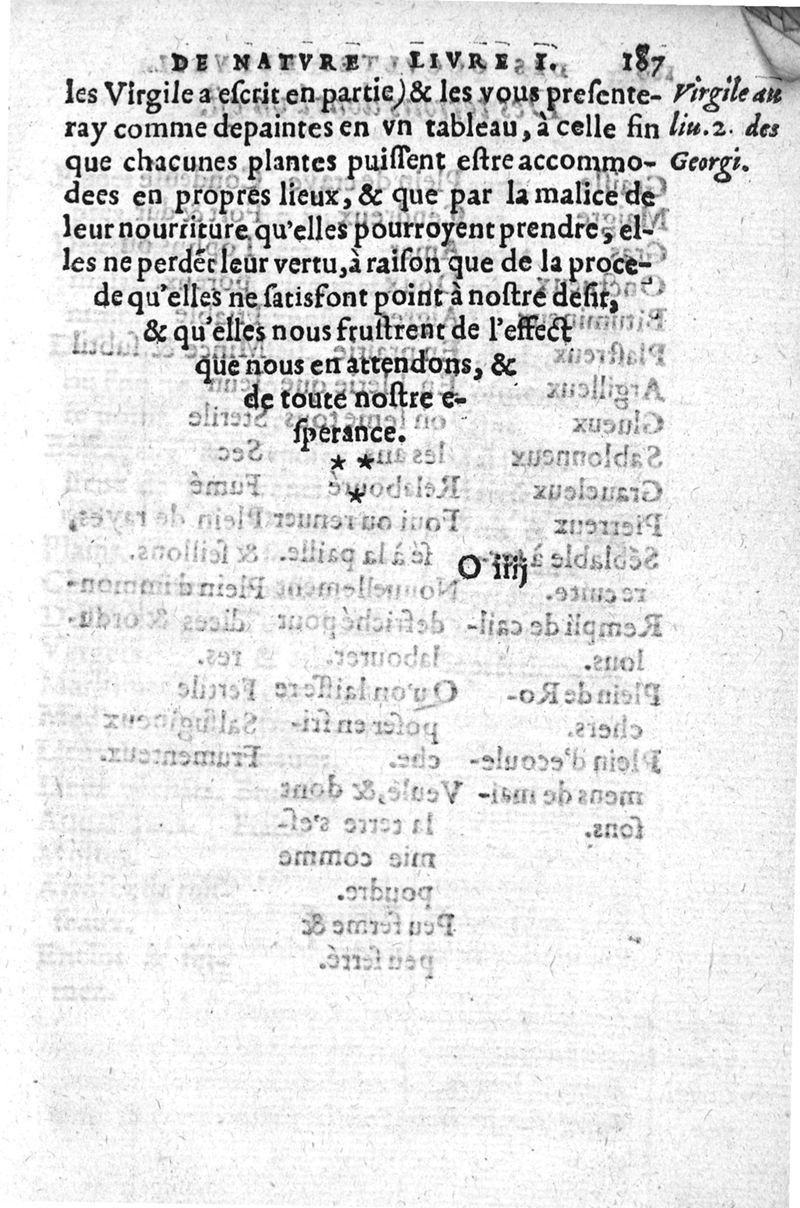 DE NATVRE LIVRE I. 187
les Virgile a eſcrit en partie) & les vous preſente-
ray comme depaintes en vn tableau, à celle fin
que chacunes plantes puiſſent eſtre accommo-
dees en propres lieux, & que par la malice de
leur nourriture qu'elles pourroyent prendre, el-
les ne perdẽt leur vertu, à raiſon que de la proce-
de qu'elles ne ſatisfont point à noſtre deſir,
& qu'elles nous fruſtrent de l'effect
que nous en attendons, &
de toute noſtre e-
ſperance.
* *
*
O iiij
Virgile au
liu. 2. des
Georgi.